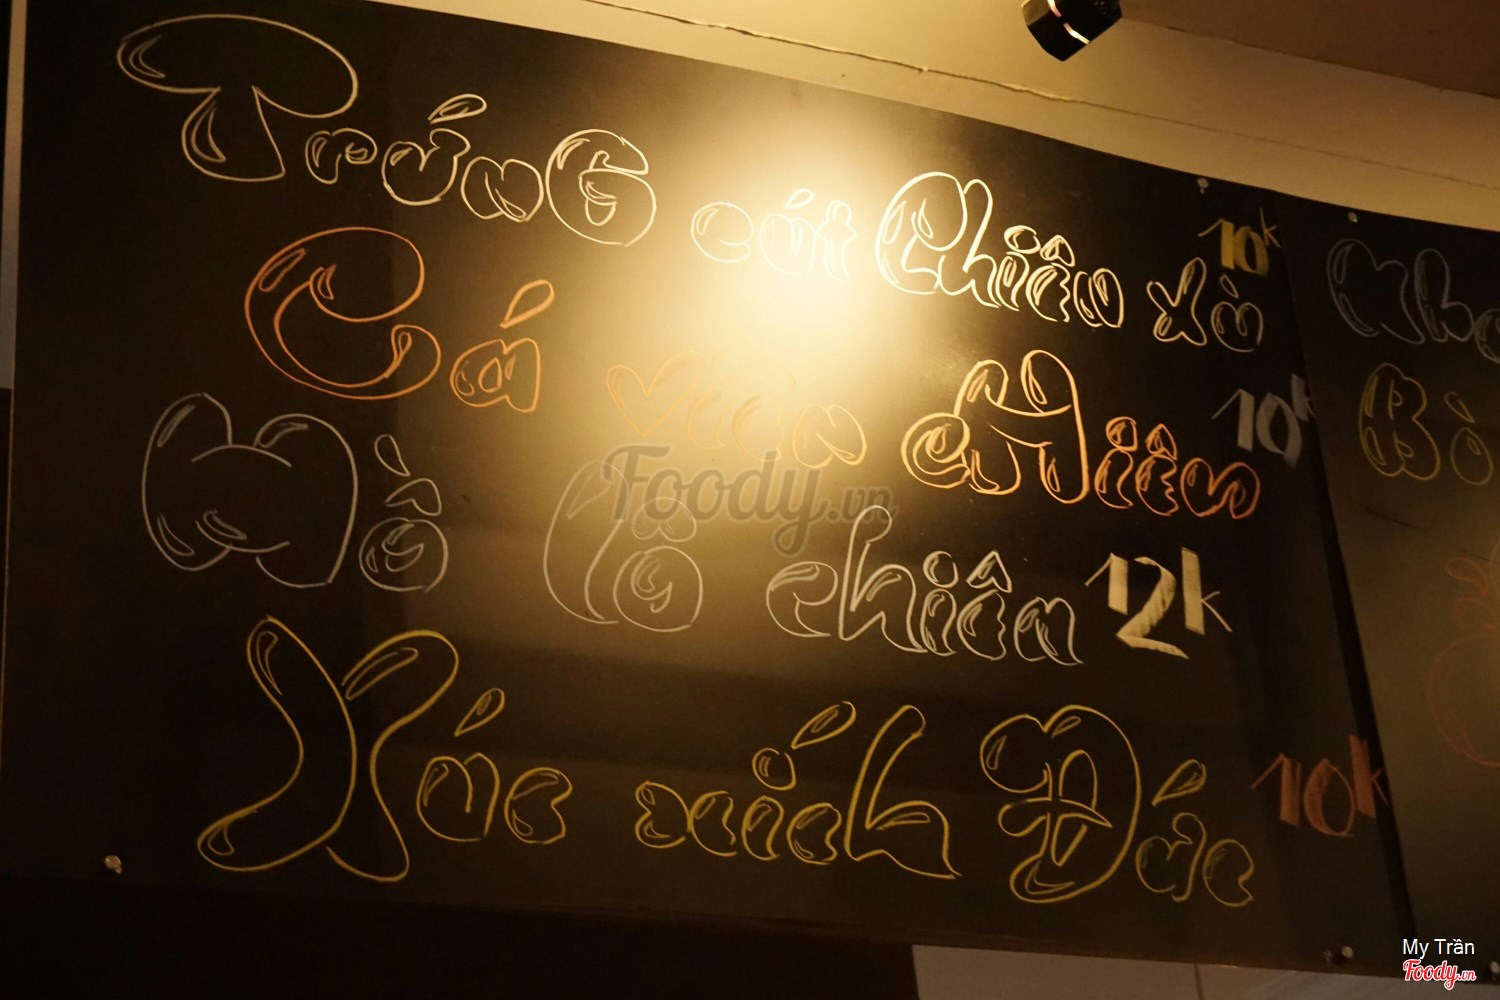 TrứnG cút Chiên xù 10k
Cá viên cHiên 10k
Hồ lô chiên 12k
Xúc xích Đức 10k
Nho
Bò
Foody.vn
My Trần
Foody.vn